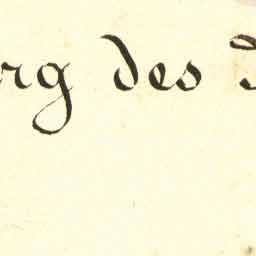 rg des